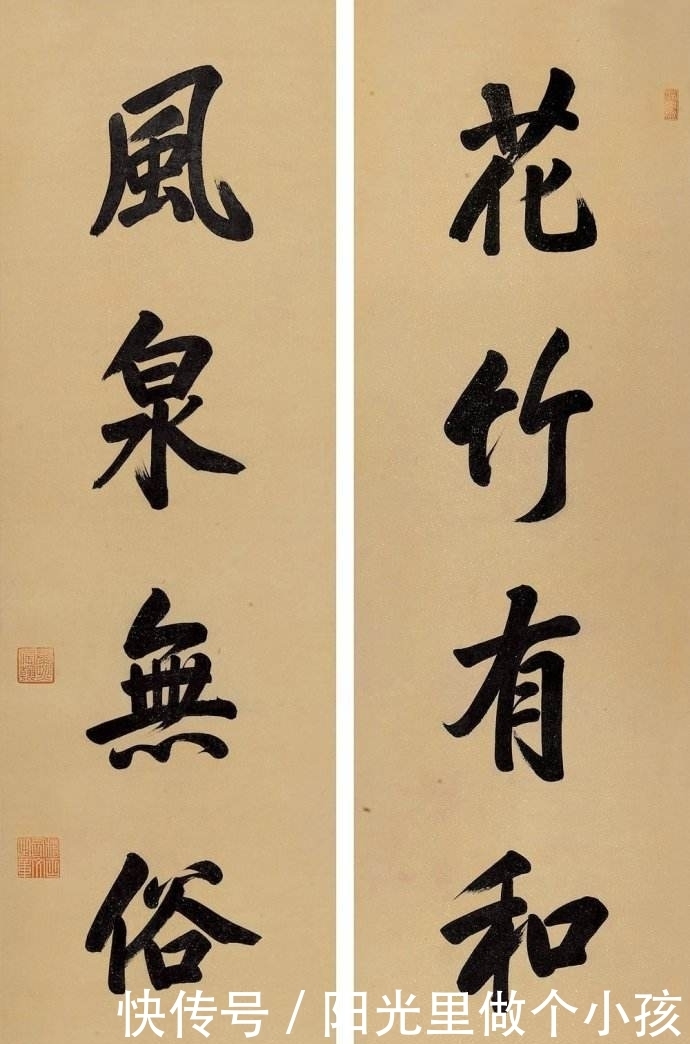 花竹有和
風泉無俗
快传号/阳光里做个小孩